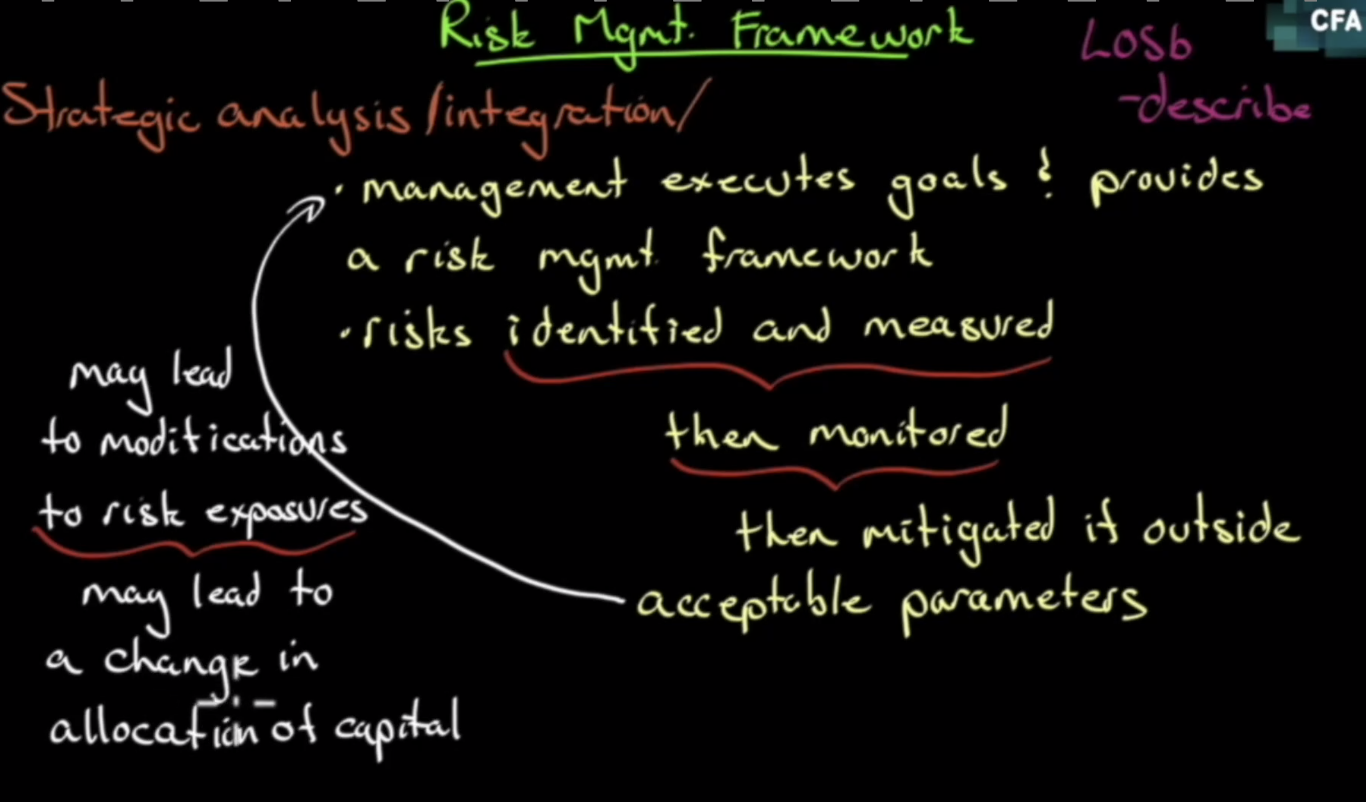 Risk Mgmt. Framework
CFA
LOSb
-describe
Strategic analysis/integration/
· management executes goals & provides
a risk mgmt. framework
· risks identified and measured
then monitored
then mitigated if outside
acceptable parameters
may lead
to modifications
to risk exposures
may lead to
a change in
allocation of capital